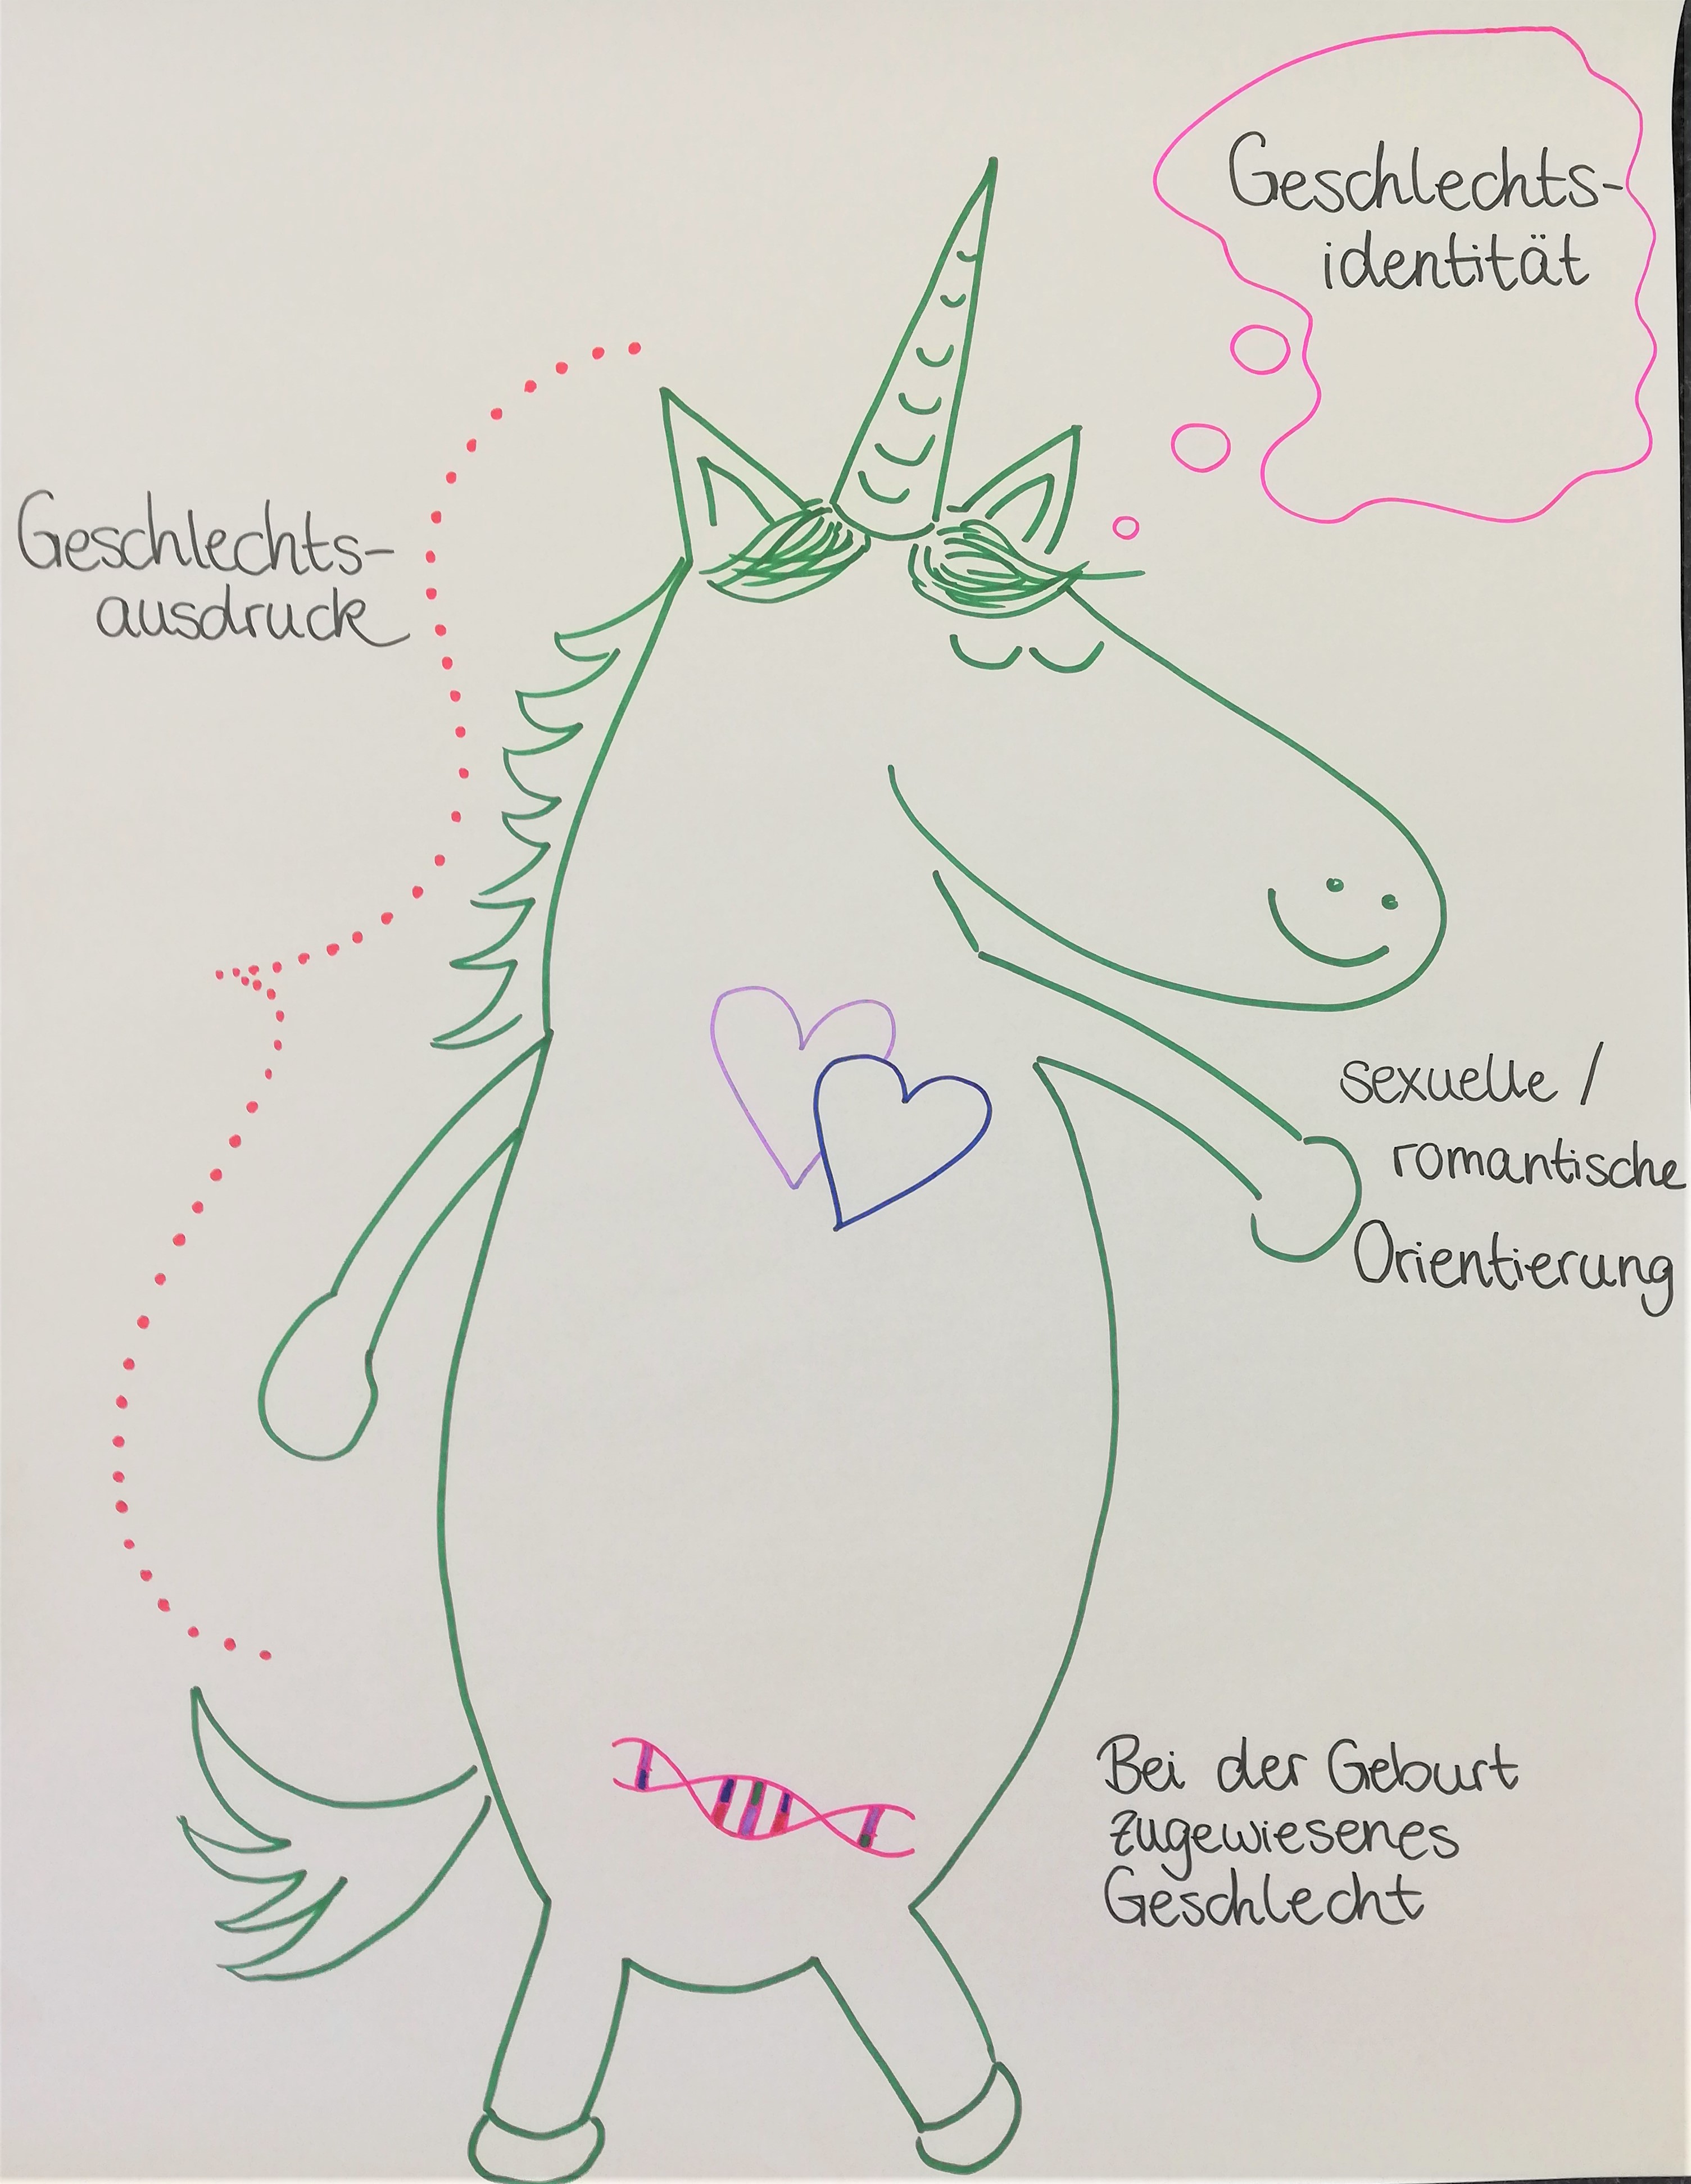 Geschlechts-
identität
Geschlechts-
ausdruck
sexuelle /
romantische
Orientierung
Bei der Geburt
zugewiesenes
Geschlecht